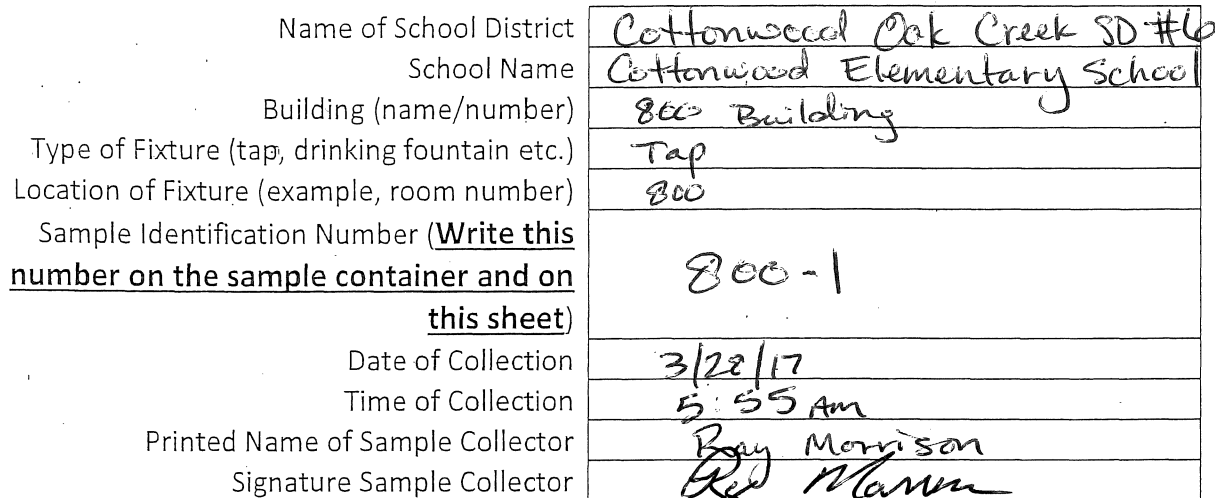 Name of School District Cottonwood Oak Creek SD #6
School Name Cottonwood Elementary School
Building (name/number) 800 Building
Type of Fixture (tap, drinking fountain etc.) Tap
Location of Fixture (example, room number) 800
Sample Identification Number (Write this
number on the sample container and on
this sheet) 800-1
Date of Collection 3/28/17
Time of Collection 5:55 Am
Printed Name of Sample Collector Ray Morrison
Signature Sample Collector